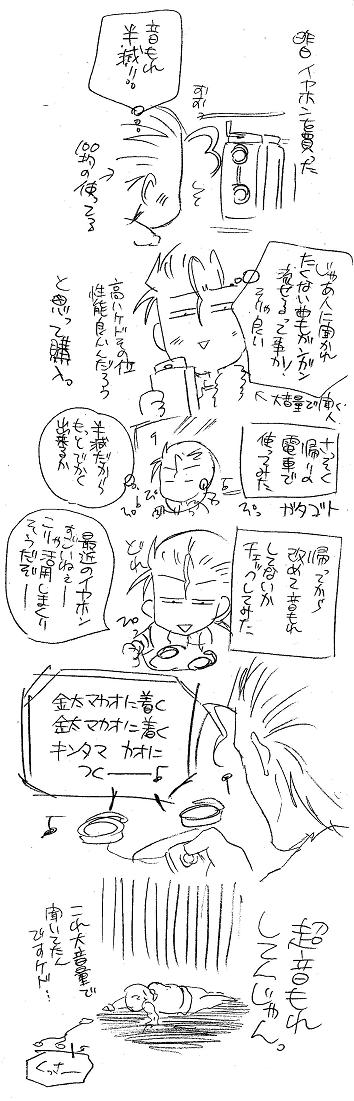 昨日イヤホンを買った
音もれ
半減!!
100均の使ってる
じゃあ人に聞かれ
たくない曲もガンガン
流せるって事か!
そりゃ良い
大音量で聞く人
高いケドその位
性能良いんだろう
と思って購入。
さっそく
帰りの
電車で
使ってみた
ガタゴト
半減だから
もっとでかく
出来るか
帰ってから
改めて音もれ
してないか
チェックしてみた
どれ
最近のイヤホン
すごいねぇ――
こりゃ活用しまくり
そうだぞ――
金太マカオに着く
金太マカオに着く
キンタマ カオに
つく――♪
超音もれ
してんじゃん。
これ大音量で
聞いてたん
ですケド…
くっさー